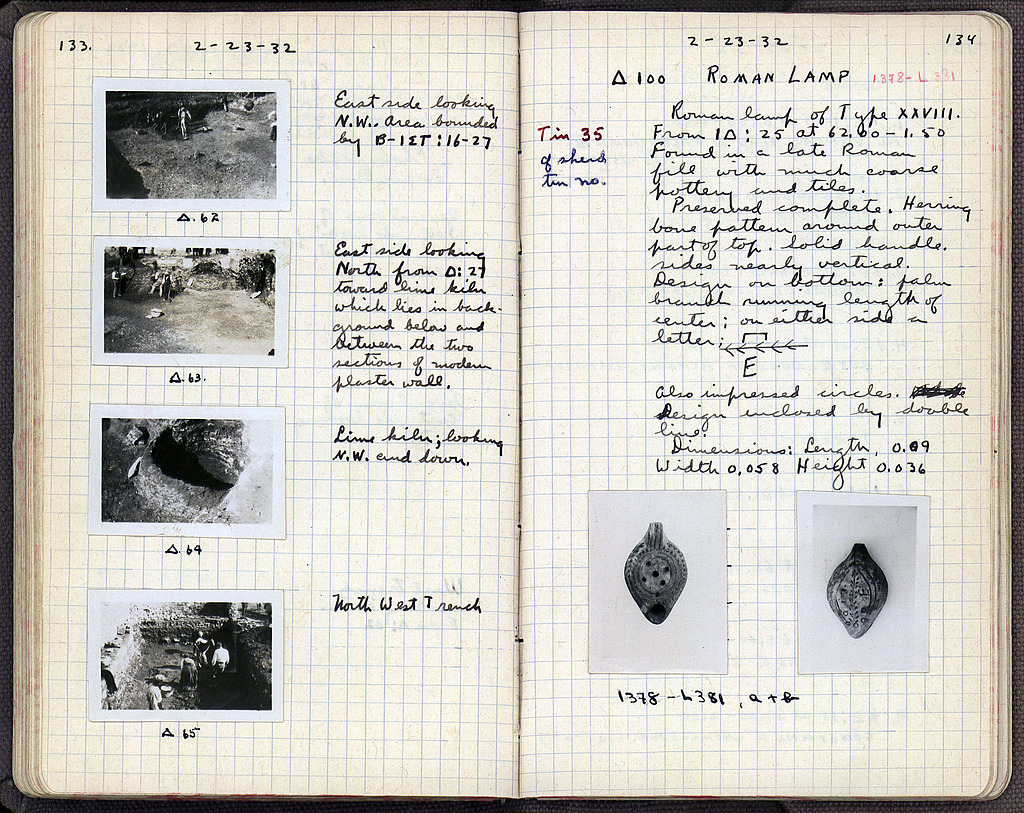 133.
2-23-32
East side looking
N.W.. Area bounded
by B-IET:16-27
Δ.62
East side looking
North from Δ:27
toward lime kiln
which lies in back-
ground below and
between the two
sections of modern
plaster wall.
Δ.63.
Lime kiln; looking
N.W. and down.
Δ.64
North West Trench
Δ 65
2-23-32
134
Δ100 ROMAN LAMP 1378-L381
Tin 35
of sherd
tin no.
Roman lamp of Type XXVIII.
From IΔ:25 at 62.00-1.50
Found in a late Roman
fill with much coarse
pottery and tiles.
Preserved complete. Herring
bone pattern around outer
part of top. Solid handle.
sides nearly vertical.
Design on bottom: palm
branch running length of
center; on either side a
letter;
E
Also impressed circles.
Design enclosed by double
line.
Dimensions: Length, 0.09
Width 0.058 Height 0.036
1378-L381, a+b